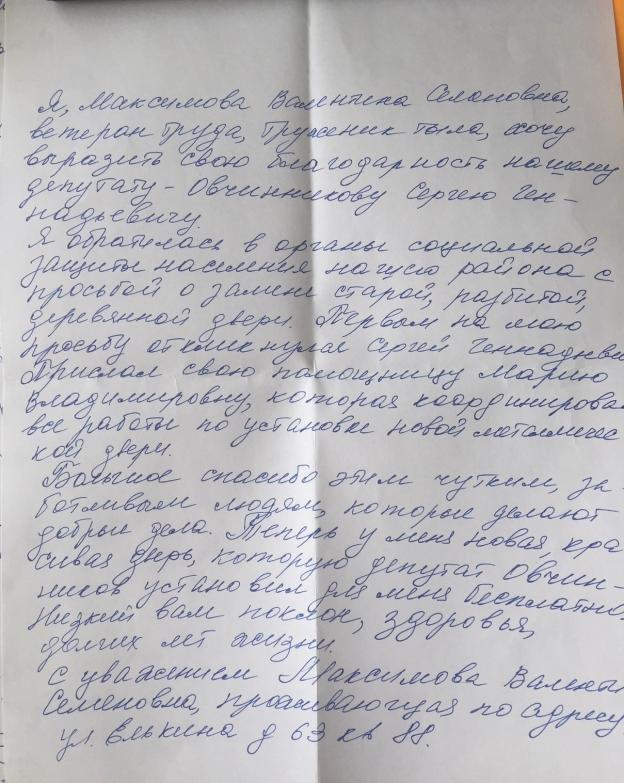 Я, Максимова Валентина Семеновна,
ветеран труда, труженик тыла, хочу
выразить свою благодарность нашему
депутату - Овчинникову Сергею Ген-
надьевичу.
Я обратилась в органы социальной
защиты населения нашего района с
просьбой о замене старой, разбитой,
деревянной двери. Первым на мою
просьбу откликнулся Сергей Геннадьеви
Прислал свою помощницу Марию
Владимировну, которая координирова
все работы по установке новой металличес
кой двери.
Большое спасибо этим чутким, за-
ботливым людям, которые делают
добрые дела. Теперь у меня новая, кра
сивая дверь, которую депутат Овчин-
ников установил для меня бесплатно.
Низкий вам поклон, здоровья,
долгих лет жизни.
С уважением Максимова Валенти
Семеновна, проживающая по адресу
ул. Елькина д 63 кв 88.